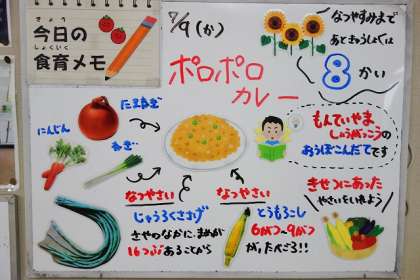 きょう
今日の
しょくいく
食育メモ
7/9(か)
なつやすみまで
あときゅうしょくは
8かい
ポロポロ
カレー
たまねぎ
にんじん
ねぎ
もんていやま
しょうがっこうの
おうぼこんだてです
なつやさい
じゅうろくささげ
さやのなかに、まめが
16つぶあることから
なつやさい
とうもろこし
6がつ〜9がつ
きせつにあった
やさいをいれよう